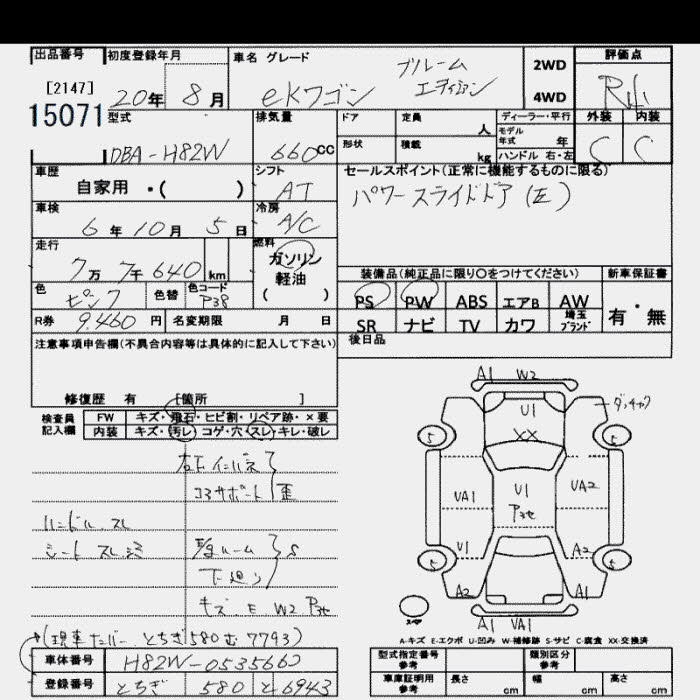 出品番号 初度登録年月 車名 グレード 2WD 4WD 評価点
[2147]
15071
20年 8月
ekワゴン ブルーム エディション
型式 排気量 ドア 定員 人 ディーラー・平行 外装 内装
DBA-H82W 660cc 形状 積載 kg モデル年式 年 ハンドル 右・左 C C
車歴 シフト セールスポイント(正常に機能するものに限る)
自家用 ・( ) AT パワースライドドア(左)
車検 冷房
6年10月5日 A/C
走行 燃料
7万 7千640km ガソリン 軽油 ( )
装備品(純正品に限り○をつけてください) 新車保証書
色 ピンク 色替 色コード P38
PS PW ABS エアB AW 有・無
SR ナビ TV カワ 埼玉ブランド
R券 9.460円 名変期限 月 日
注意事項申告欄(不具合内容等は具体的に記入して下さい) 後日品
修復歴 有 [箇所 ]
検査員記入欄 FW キズ・飛石・ヒビ割・リペア跡・×要
内装 キズ・汚レ・コゲ・穴・スレ・キレ・破レ
右F インパネ
コアサポート 歪
ハンドル スレ
シート スレ シミ
ルーム S
下廻り
キズ E W2
A1 W2
U1
XX
5 5
VA1 U1 VA2
U1 A2
5 5
A2 A1
A1 VA1
A-キズ E-エクボ U-凹み W-補修跡 S-サビ C-腐食 XX-交換済
(現車ナンバー とちぎ580む7793)
車体番号 H82W-0535660
登録番号 とちぎ 580 と6943
型式指定番号 参考 類別区分 参考
車庫証明用 参考 長さ cm 幅 cm 高さ cm